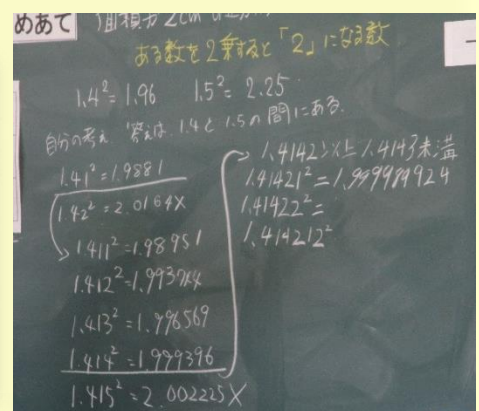 めあて
面積が2cm
ある数を2乗すると「2」になる数
1.4²=1.96 1.5²=2.25
自分の考え 答えは1.4と1.5の間にある。
1.41²=1.9881
1.42²=2.0164X
1.411²=1.98951
1.412²=1.993744
1.413²=1.996569
1.414²=1.999396
1.415²=2.002225X
1.4142以上1.4143未満
1.41421²=1.999989924
1.41422²=
1.414212²